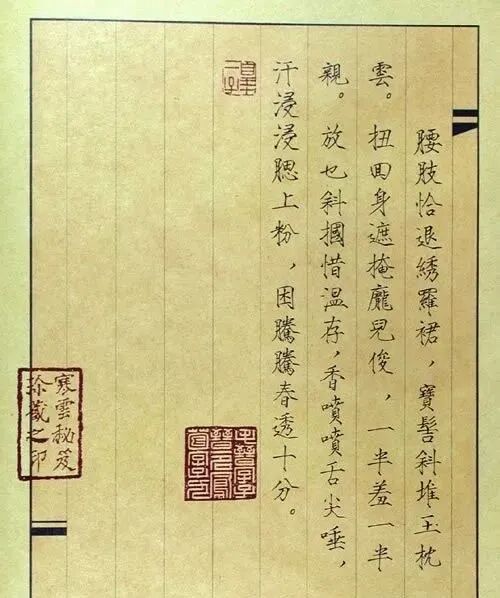 腰肢恰退綉羅裙，寶髻斜堆玉枕
雲。扭回身遮掩龐兒俊，一半羞一半
親。放也斜摑惜溫存，香噴噴舌尖唾，
汗浸浸腮上粉，困騰騰春透十分。
寒雲秘笈
珍藏之印